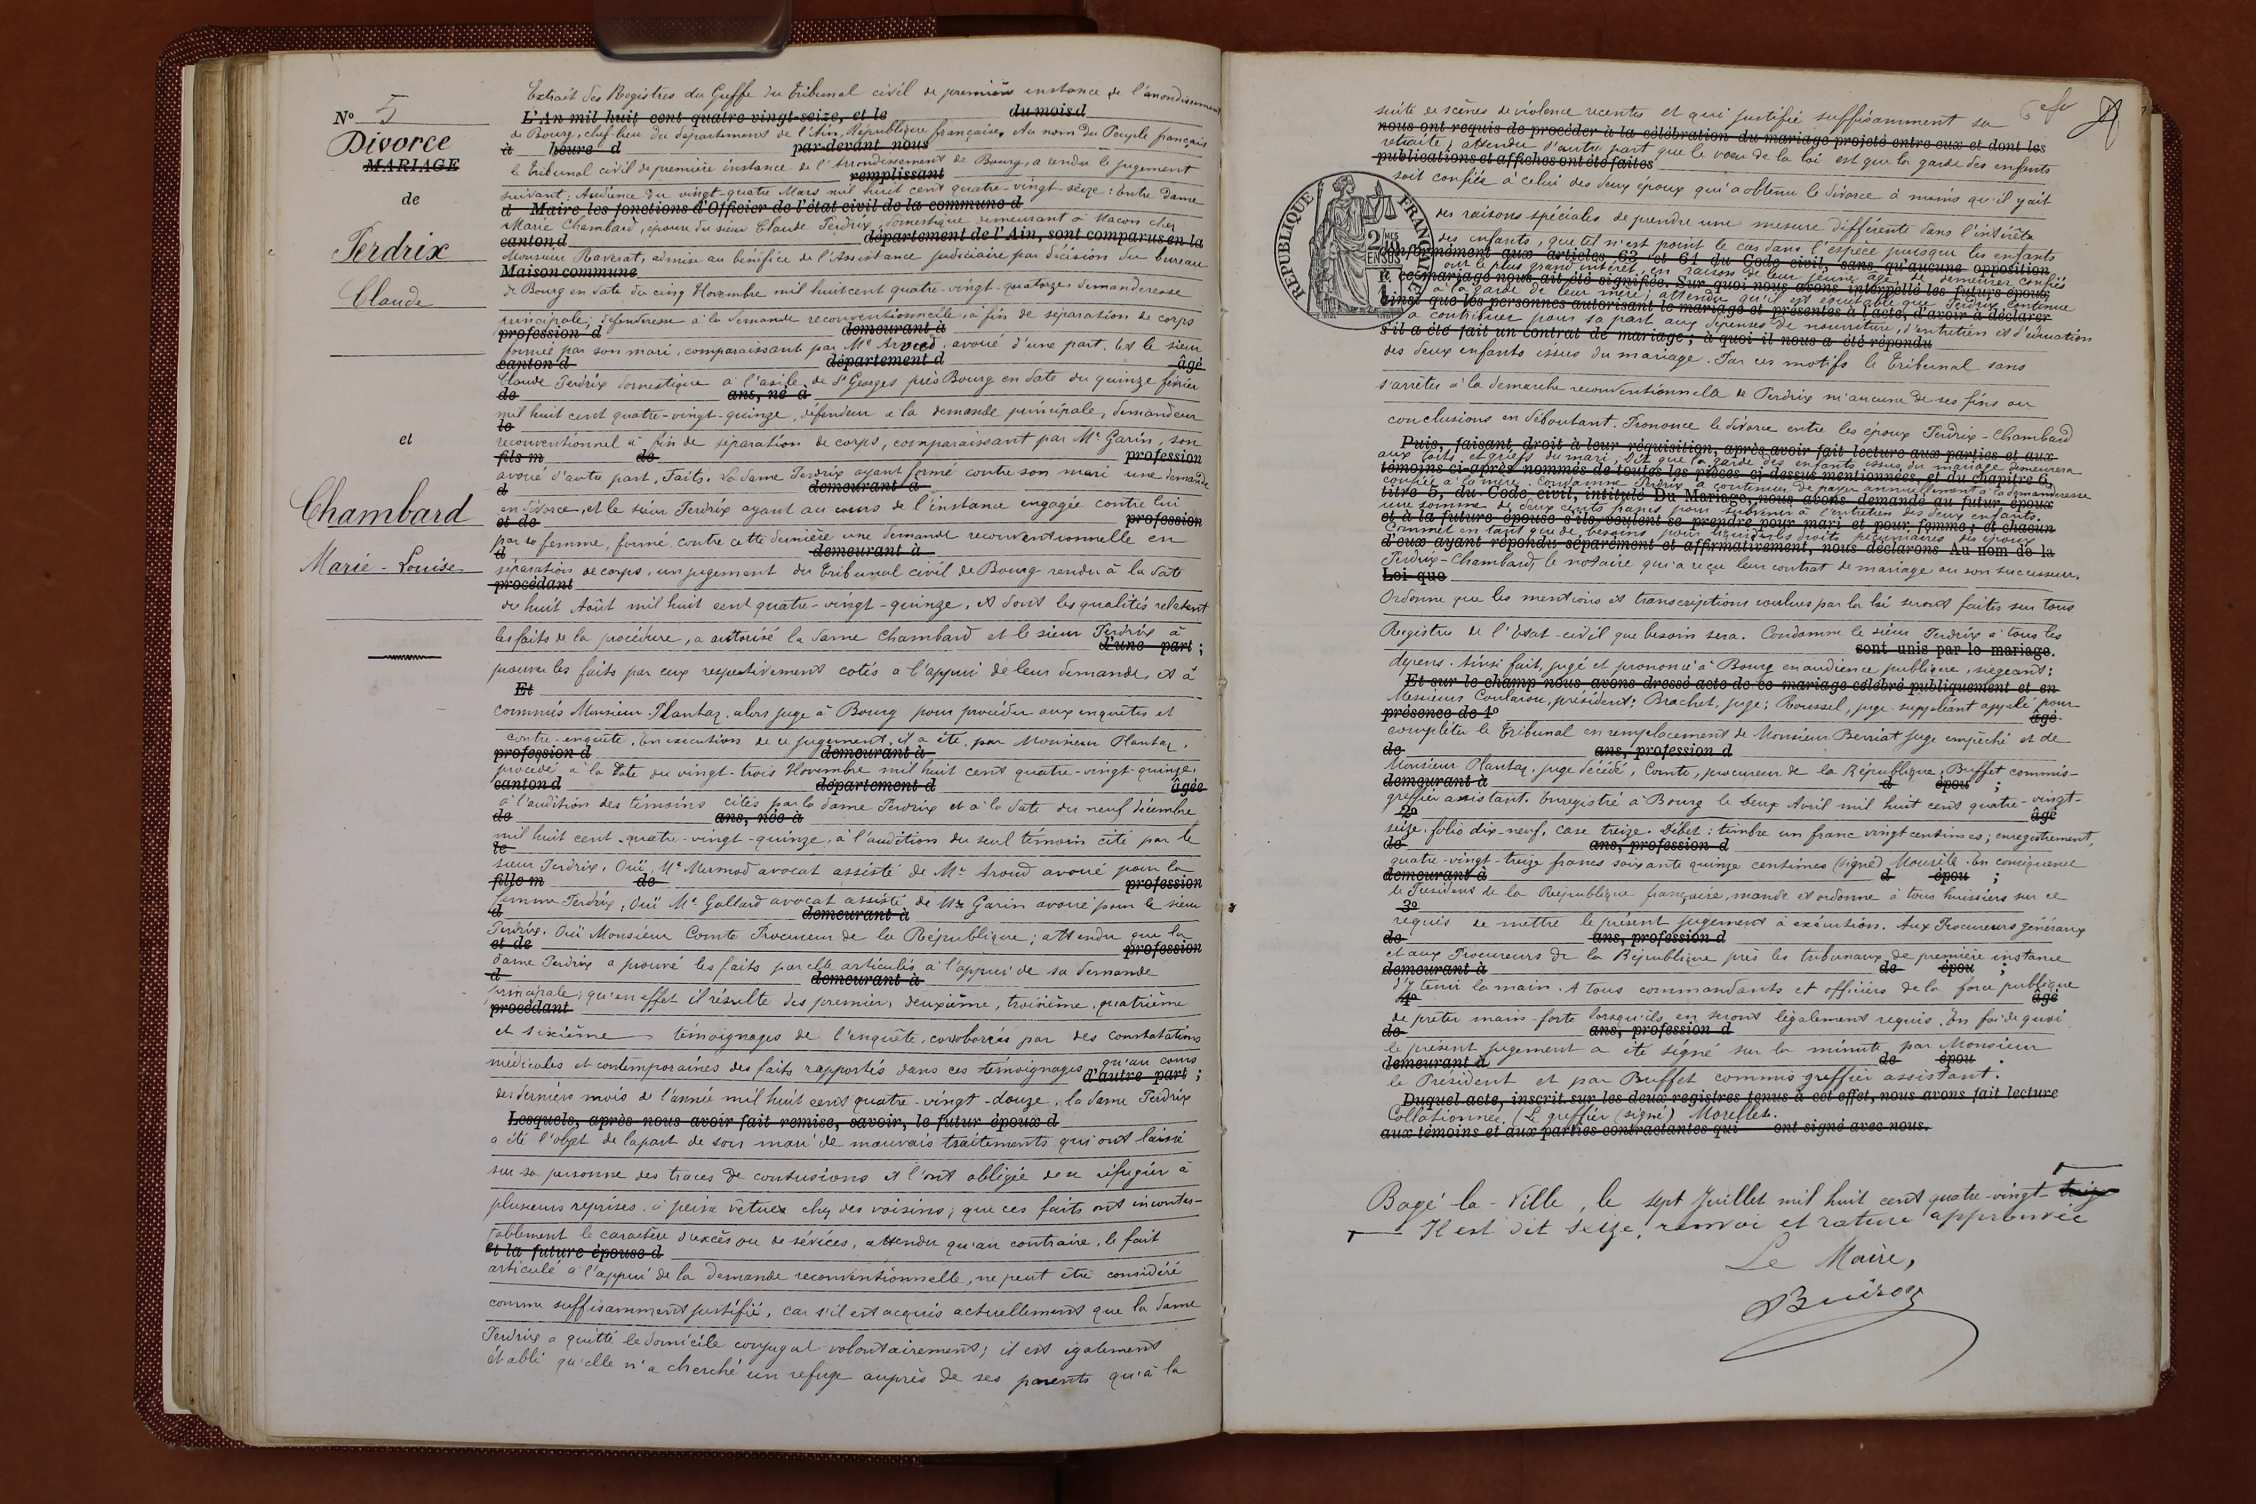 Nº 5
Divorce
MARIAGE
de
Perdrix
Claude
et
Chambard
Marie-Louise
Extrait des Registres du Greffe du tribunal civil de première instance de l'arrondissement
L'An mil huit cent quatre-vingt-seize, et le du mois d
de Bourg, chef-lieu du département de l'Ain, République française. Au nom du Peuple français
à heure d par-devant nous
le tribunal civil de première instance de l'Arrondissement de Bourg, a rendu le jugement
remplissant
suivant: Audience du vingt-quatre Mars mil huit cent quatre-vingt-seize: Entre dame
d Maire les fonctions d'Officier de l'état civil de la commune d
Marie Chambard, épouse du sieur Claude Perdrix, domestique demeurant à Macon chez
canton d département de l'Ain, sont comparus en la
Monsieur Raverat, admise au bénéfice de l'Assistance judiciaire par décision du bureau
Maison commune
de Bourg en date du cinq Novembre mil huit cent quatre-vingt-quatorze, demanderesse
principale, défenderesse à la demande reconventionnelle à fin de séparation de corps
profession d demeurant à
formée par son mari, comparaissant par Me Aroud, avoué d'une part. Et le sieur
canton d département d âgé
Claude Perdrix domestique à l'asile de St Georges près Bourg en date du quinze février
de ans, né à
mil huit cent quatre-vingt-quinze, défendeur à la demande principale, demandeur
le
reconventionnel à fin de séparation de corps, comparaissant par Me Garin, son
fils m de profession
avoué d'autre part. Faits. La dame Perdrix ayant formé contre son mari une demande
d demeurant à
en divorce, et le sieur Perdrix ayant au cours de l'instance engagée contre lui
et de profession
par sa femme, formé contre cette dernière une demande reconventionnelle en
d demeurant à
séparation de corps, un jugement du tribunal civil de Bourg rendu à la date
procédant
du huit Août mil huit cent quatre-vingt-quinze, et dont les qualités relatent
les faits de la procédure, a autorisé la dame Chambard et le sieur Perdrix à
d'une part;
prouver les faits par eux respectivement cotés à l'appui de leur demande, et à
Et
commis Monsieur Plantaz, alors juge à Bourg pour procéder aux enquêtes et
contre-enquête. En exécution de ce jugement, il a été par Monsieur Plantaz,
profession d demeurant à
procédé à la date du vingt-trois Novembre mil huit cent quatre-vingt-quinze,
canton d département d âgée
à l'audition des témoins cités par la dame Perdrix et à la date du neuf décembre
de ans, née à
mil huit cent quatre-vingt-quinze, à l'audition du seul témoin cité par le
le
sieur Perdrix. Ouï Me Mermod avocat assisté de Me Aroud avoué pour la
fille m de profession
femme Perdrix, Ouï Me Gallard avocat assisté de Me Garin avoué pour le sieur
d demeurant à
Perdrix. Ouï Monsieur Comte Procureur de la République; attendu que la
et de profession
dame Perdrix a prouvé les faits par elle articulés à l'appui de sa demande
d demeurant à
principale; qu'en effet il résulte des premier, deuxième, troisième, quatrième
procédant
et sixième témoignages de l'enquête, corroborés par des constatations
médicales et contemporaines des faits rapportés dans ces témoignages qu'au cours
d'autre part;
des derniers mois de l'année mil huit cent quatre-vingt-douze, la dame Perdrix
Lesquels, après nous avoir fait remise, savoir, le futur époux d
a été l'objet de la part de son mari de mauvais traitements qui ont laissé
sur sa personne des traces de contusions et l'ont obligée de se réfugier à
plusieurs reprises à peine vêtue chez des voisins; que ces faits ont incontes-
tablement le caractère d'excès ou de sévices, attendu qu'au contraire, le fait
et la future épouse d
articulé à l'appui de la demande reconventionnelle, ne peut être considéré
comme suffisamment justifié, car s'il est acquis actuellement que la dame
Perdrix a quitté le domicile conjugal volontairement; il est également
établi qu'elle n'a cherché un refuge auprès de ses parents qu'à la
suite de scènes de violence récentes et qui justifie suffisamment sa
nous ont requis de procéder à la célébration du mariage projeté entre eux et dont les
retraite; attendu d'autre part que le vœu de la loi est que la garde des enfants
publications et affiches ont été faites
soit confiée à celui des deux époux qui a obtenu le divorce à moins qu'il y ait
des raisons spéciales de prendre une mesure différente dans l'intérêt
des enfants, que tel n'est point le cas dans l'espèce puisque les enfants
conformément aux articles 63 et 64 du Code civil, sans qu'aucune opposition
ont le plus grand intérêt, en raison de leur jeune âge de demeurer confiés
à ce mariage nous ait été signifiée. Sur quoi nous avons interpellé les futurs époux,
à la garde de leur mère; attendu qu'il est équitable que Perdrix continue
ainsi que les personnes autorisant le mariage et présentes à l'acte, d'avoir à déclarer
à contribuer pour sa part aux dépenses de nourriture, d'entretien et d'éducation
s'il a été fait un contrat de mariage; à quoi il nous a été répondu
des deux enfants issus du mariage. Par ces motifs le Tribunal sans
s'arrêter à la demande reconventionnelle de Perdrix ni aucune de ses fins ou
conclusions en déboutant. Prononce le divorce entre les époux Perdrix-Chambard
Puis, faisant droit à leur réquisition, après avoir fait lecture aux parties et aux
aux torts et griefs du mari. Dit que la garde des enfants issus du mariage demeurera
témoins ci-après nommés de toutes les pièces ci-dessus mentionnées, et du chapitre 6,
confiée à la mère. Condamne Perdrix à continuer de payer annuellement à la demanderesse
titre 5, du Code civil, intitulé Du Mariage, nous avons demandé au futur époux
une somme de deux cents francs pour subvenir à l'entretien des deux enfants.
et à la future épouse s'ils veulent se prendre pour mari et pour femme; et chacun
Commet en tant que de besoins pour liquider les droits pécuniaires des époux
d'eux ayant répondu séparément et affirmativement, nous déclarons Au nom de la
Perdrix-Chambard, le notaire qui a reçu leur contrat de mariage ou son successeur.
Loi que
Ordonne que les mentions et transcriptions voulues par la loi seront faites sur tous
Registres de l'Etat-civil que besoin sera. Condamne le sieur Perdrix à tous les
sont unis par le mariage.
dépens. Ainsi fait, jugé et prononcé à Bourg en audience publique, siégeant:
Et sur le champ nous avons dressé acte de ce mariage célébré publiquement et en
Messieurs président; Brachet, juge; Roussel, juge suppléant appelé pour
présence de 1º âgé
compléter le Tribunal en remplacement de Monsieur Berriat juge empêché et de
de ans, profession d
Monsieur Plantaz, juge décédé, Comte, procureur de la République, Buffet commis-
demeurant à d épou ;
greffier assistant. Enregistré à Bourg le deux Avril mil huit cent quatre-vingt-
2º âgé
seize, folio dix-neuf, case treize. Débet: timbre un franc vingt centimes; enregistrement,
de ans, profession d
quatre-vingt-treize francs soixante quinze centimes (signé) En conséquence
demeurant à d épou ;
le Président de la République française, mande et ordonne à tous huissiers sur ce
3º
requis de mettre le présent jugement à exécution. Aux Procureurs généraux
de ans, profession d
et aux Procureurs de la République près les tribunaux de première instance
demeurant à de épou ;
d'y tenir la main. A tous commandants et officiers de la force publique
4º âgé
de prêter main-forte lorsqu'ils en seront légalement requis. En foi de quoi
de ans, profession d
le présent jugement a été signé sur la minute par Monsieur
demeurant à de épou .
le Président et par Buffet commis greffier assistant.
Duquel acte, inscrit sur les deux registres tenus à cet effet, nous avons fait lecture
Collationné. (Le greffier (signé) Morellet.
aux témoins et aux parties contractantes qui ont signé avec nous.
Bagé-la-Ville, le sept Juillet mil huit cent quatre-vingt-treize
Il est dit seize, renvoi et rature approuvée
Le Maire,
RÉPUBLIQUE FRANÇAISE
2/10
EN SUS